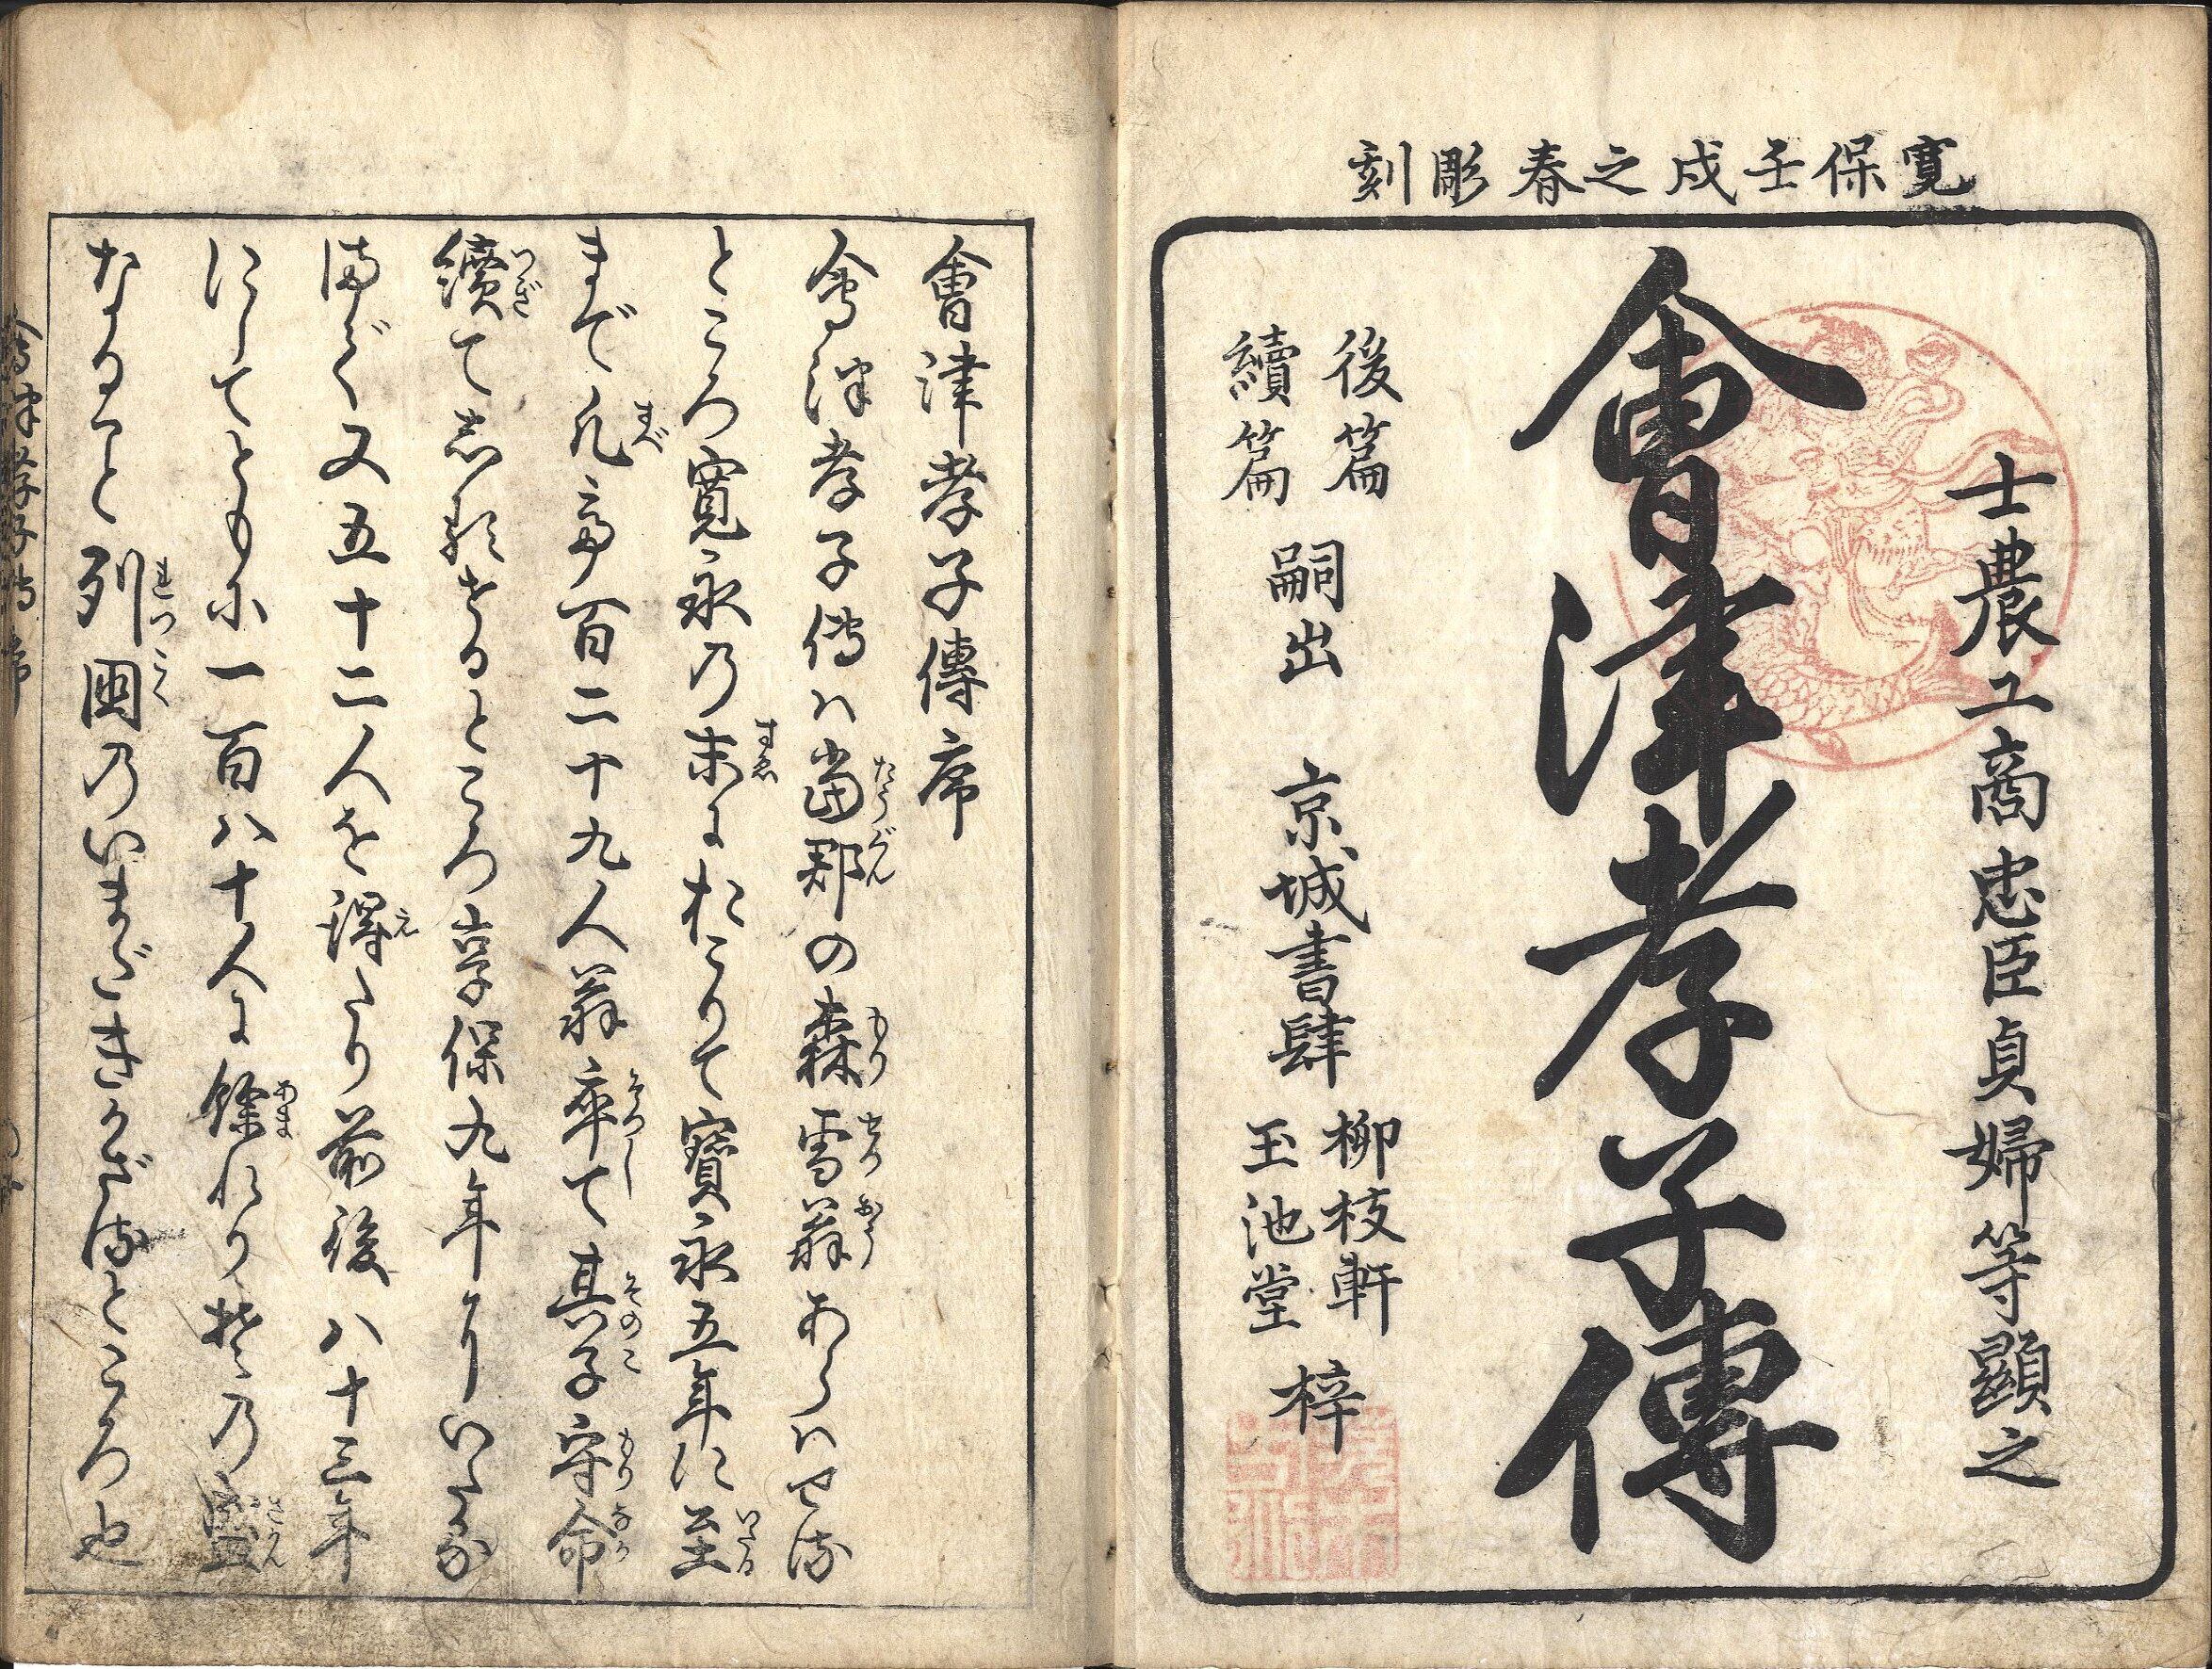 寛保壬戌之春彫刻
士農工商忠臣貞婦等顕之
會津孝子傳
後篇
續篇
嗣出
京城書肆
柳枝軒
玉池堂
梓
會津孝子傳序
會津孝子傳ハ當郡の森雪翁あらハせる
ところ寛永乃末におこりて寳永五年に至
まで凡テ百二十九人翁卒て其子守命
續て志るせるところ享保九年よりいたる
まで又五十二人を得たり前後八十三年
にしてともに一百八十人に餘れり其乃盛
なること列國乃いまだきかざるところ也